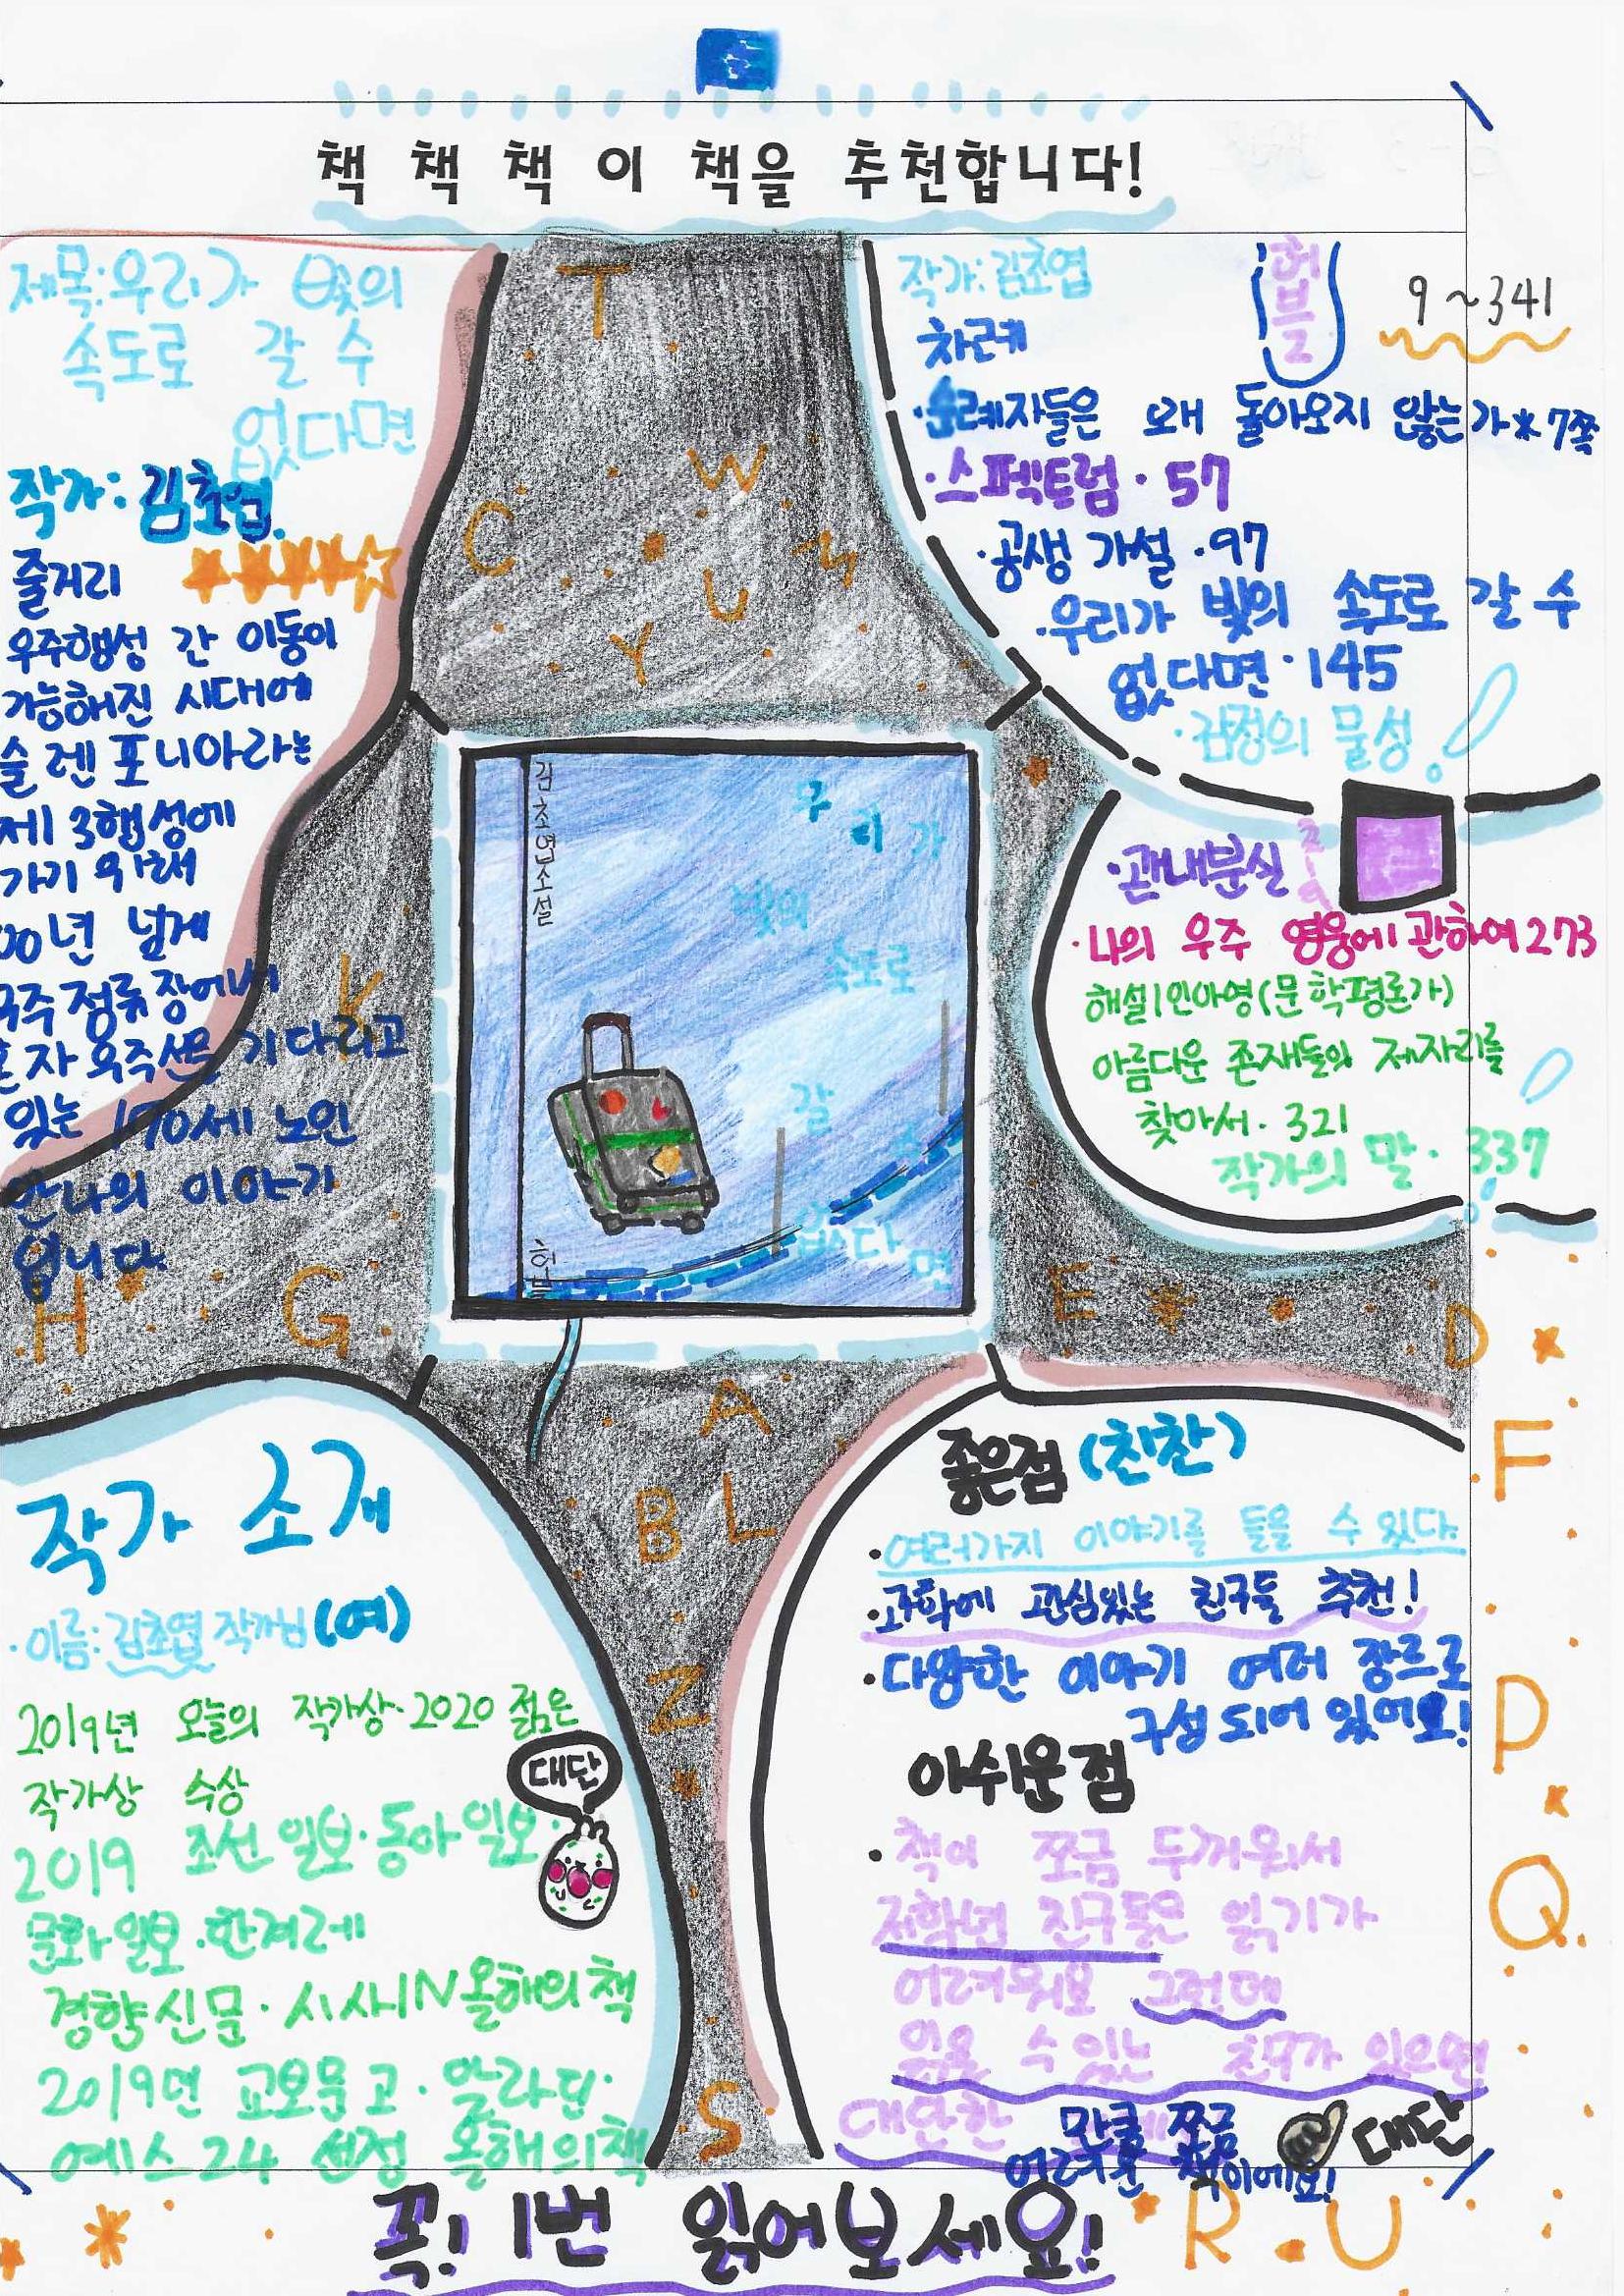 책 책 책 이 책을 추천합니다!
제목:우리가 빛의
속도로 갈 수
없다면
작가: 김초엽.
줄거리
우주행성 간 이동이
가능해진 시대에
슬렌포니아라는
제3행성에
가기 위해
00년 넘게
우주정류장에서
혼자 우주선을 기다리고
있는 170세 노인
안나의 이야기
입니다.
작가:김초엽
허블
9~341
차례
·순례자들은 왜 돌아오지 않는가*7쪽
·스펙트럼·57
·공생 가설·97
·우리가 빛의 속도로 갈 수
없다면·145
·감정의 물성
·관내분실
·나의 우주 영웅에 관하여 273
해설|인아영(문학평론가)
아름다운 존재들의 제자리를
찾아서·321
작가의 말·337
T
W
C
U
Y
K
H
G
E
D
A
L
B
Z
S
F
P
Q
R
U
김초엽소설
허블
우리가
빛의
속도로
갈
수
없다
면
작가 소개
·이름:김초엽 작가님(여)
2019년 오늘의 작가상·2020 젊은
작가상 수상
대단
2019 조선일보·동아일보·
문화일보·한겨레
경향신문·시사IN올해의책
2019년 교보문고·알라딘·
예스24 선정 올해의책
좋은점(찬찬)
·여러가지 이야기를 들을 수 있다.
·과학에 관심있는 친구들 추천!
·다양한 이야기 여러 장르로
구성되어 있어요!
아쉬운점
·책이 쪼금 두꺼워서
저학년 친구들은 읽기가
어려워요 그런데
읽을 수 있는 친구가 있으면
대단한
쪼금
어려운 책이에요!
대단
꼭! 1번 읽어보세요!